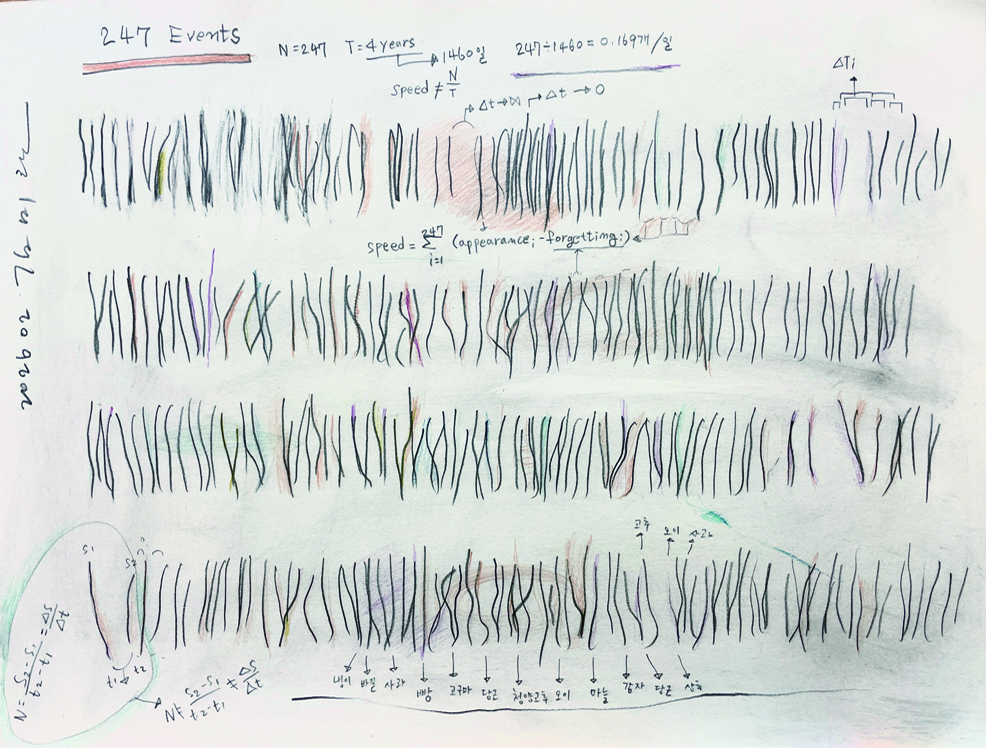 247 Events
N=247 T=4years
1460일
247÷1460=0.1697/일
speed ≠ N/T
Δt→∞
Δt→0
ΔTi
speed = 247 Σ i=1 (appearanceᵢ - forgettingᵢ)
고추
오이
사과
S₁
S₂
t₁
t₂
N = S₂-S₁ / t₂-t₁ = ΔS/Δt
N≠ S₂-S₁ / t₂-t₁ ≠ ΔS/Δt
냉이
바질
사과
빵
고구마
당근
청양고추
오이
마늘
감자
당근
상추